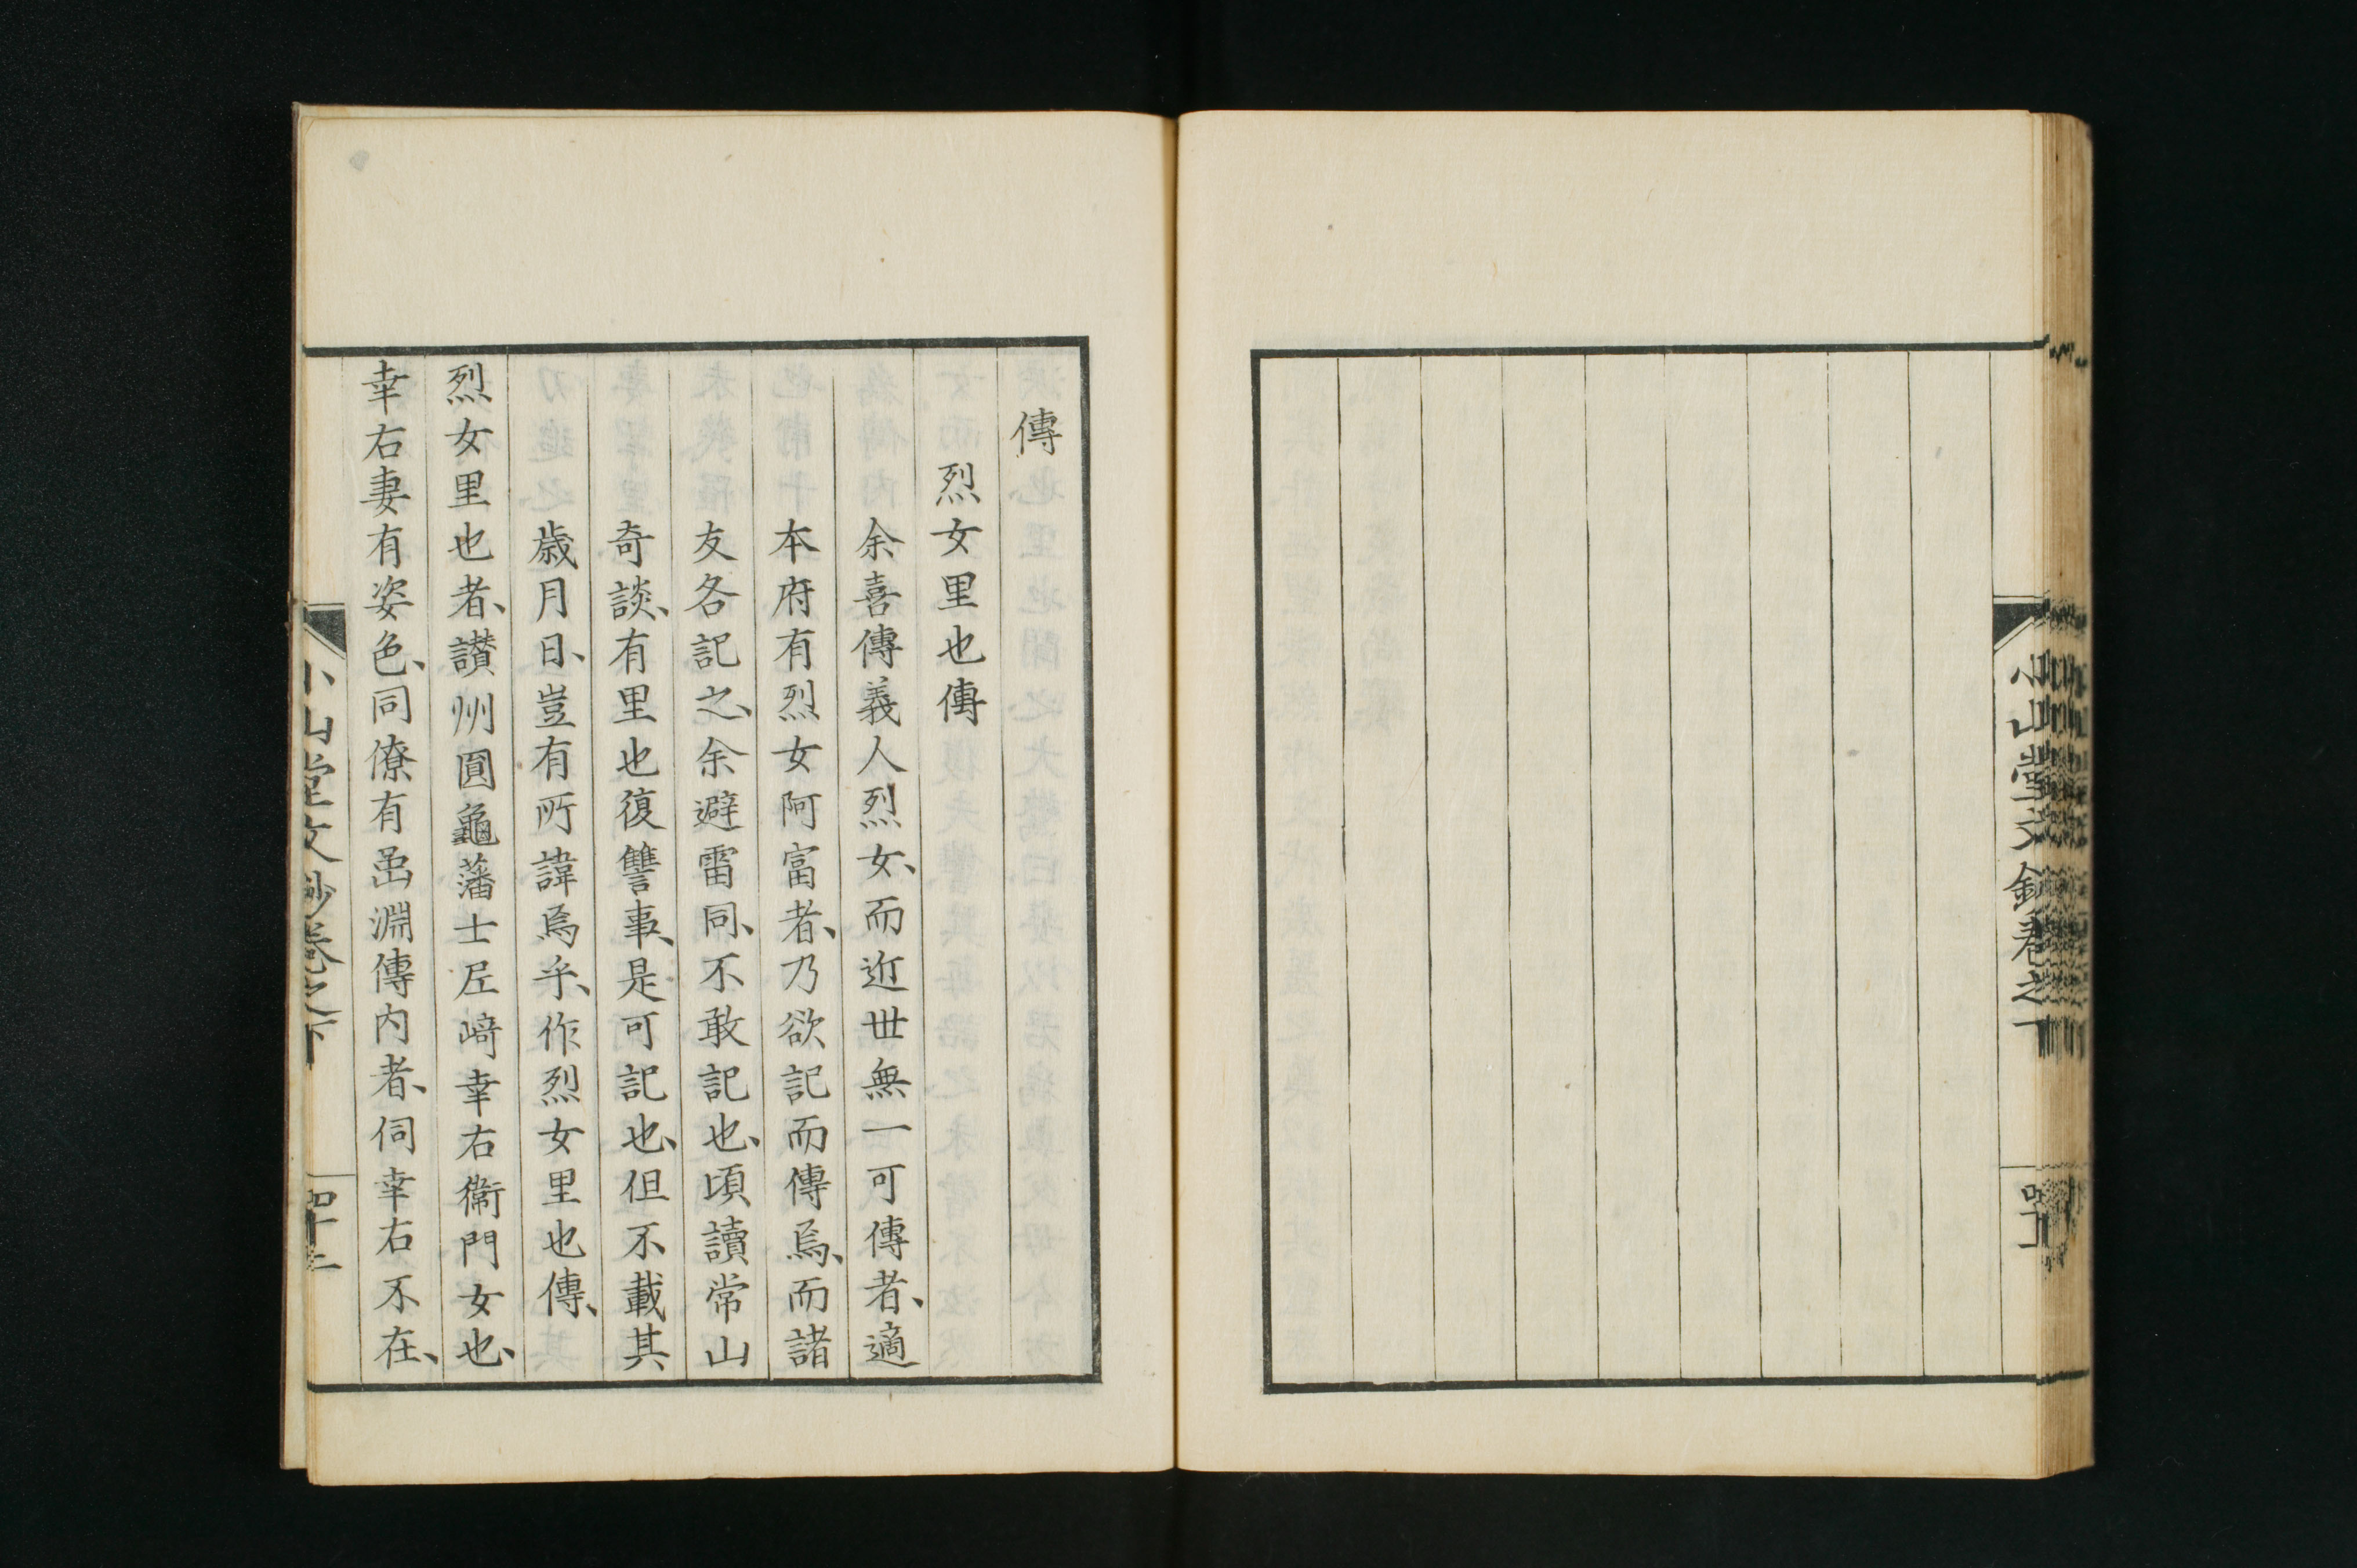 小山堂文鈔卷之下
傳
烈女里也傳
余喜傳義人烈女、而近世無一可傳者、適
本府有烈女阿富者、乃欲記而傳焉、而諸
友各記之、余避雷同、不敢記也、頃讀常山
奇談、有里也復讐事、是可記也、但不載其
歲月日、豈有所諱焉乎、作烈女里也傳、
烈女里也者、讃州圓龜藩士尼﨑幸右衞門女也、
幸右妻有姿色、同僚有嵒淵傳内者、伺幸右不在、
小山堂文鈔卷之下